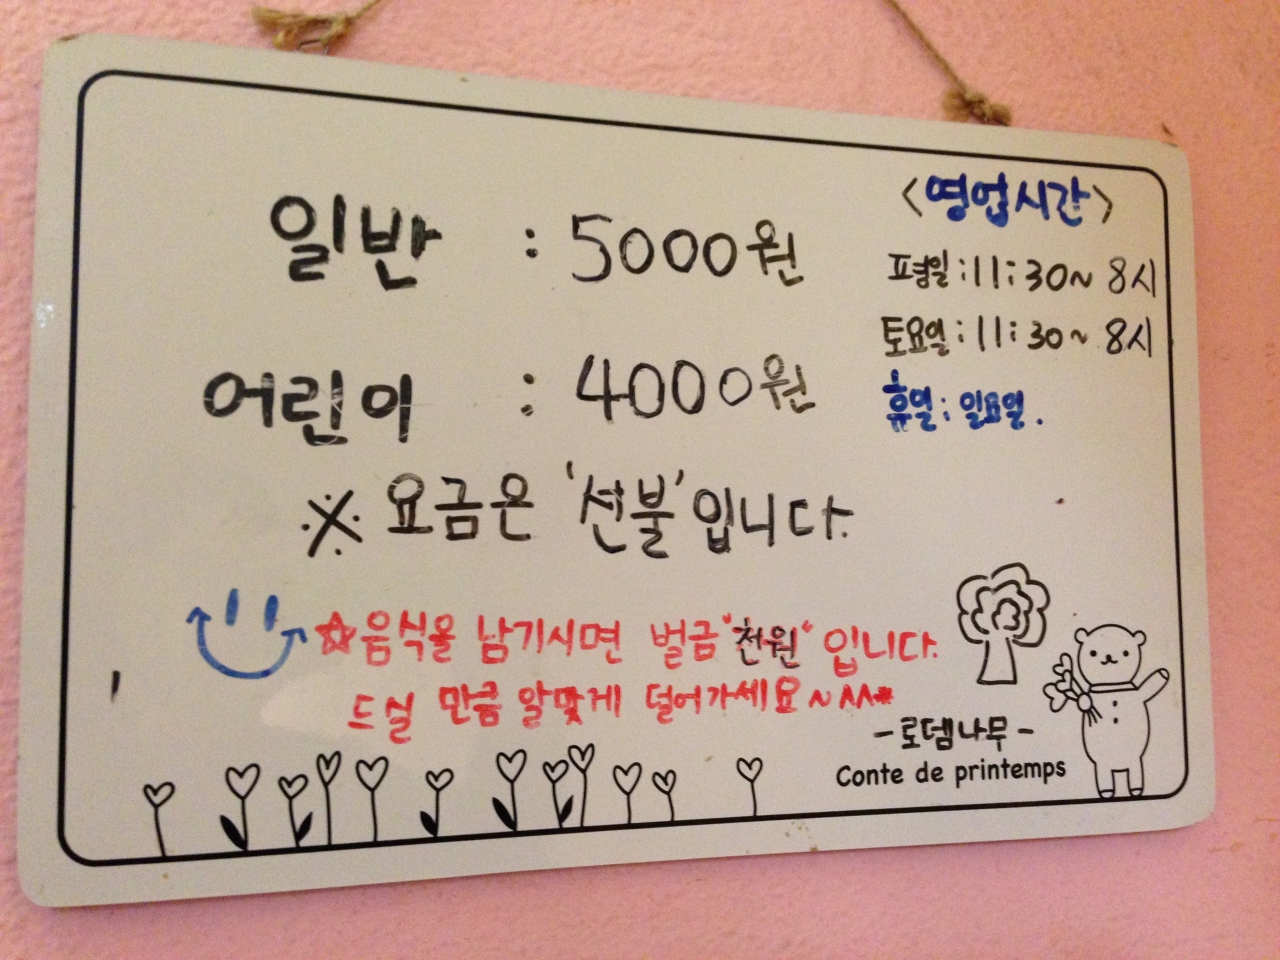 일반 : 5000원
어린이 : 4000원
※ 요금은 '선불'입니다.
☆음식을 남기시면 벌금 "천원" 입니다.
드실 만큼 알맞게 덜어가세요~^^*
<영업시간>
평일:11:30~8시
토요일:11:30~8시
휴일: 일요일.
-로뎀나무-
Conte de printemps